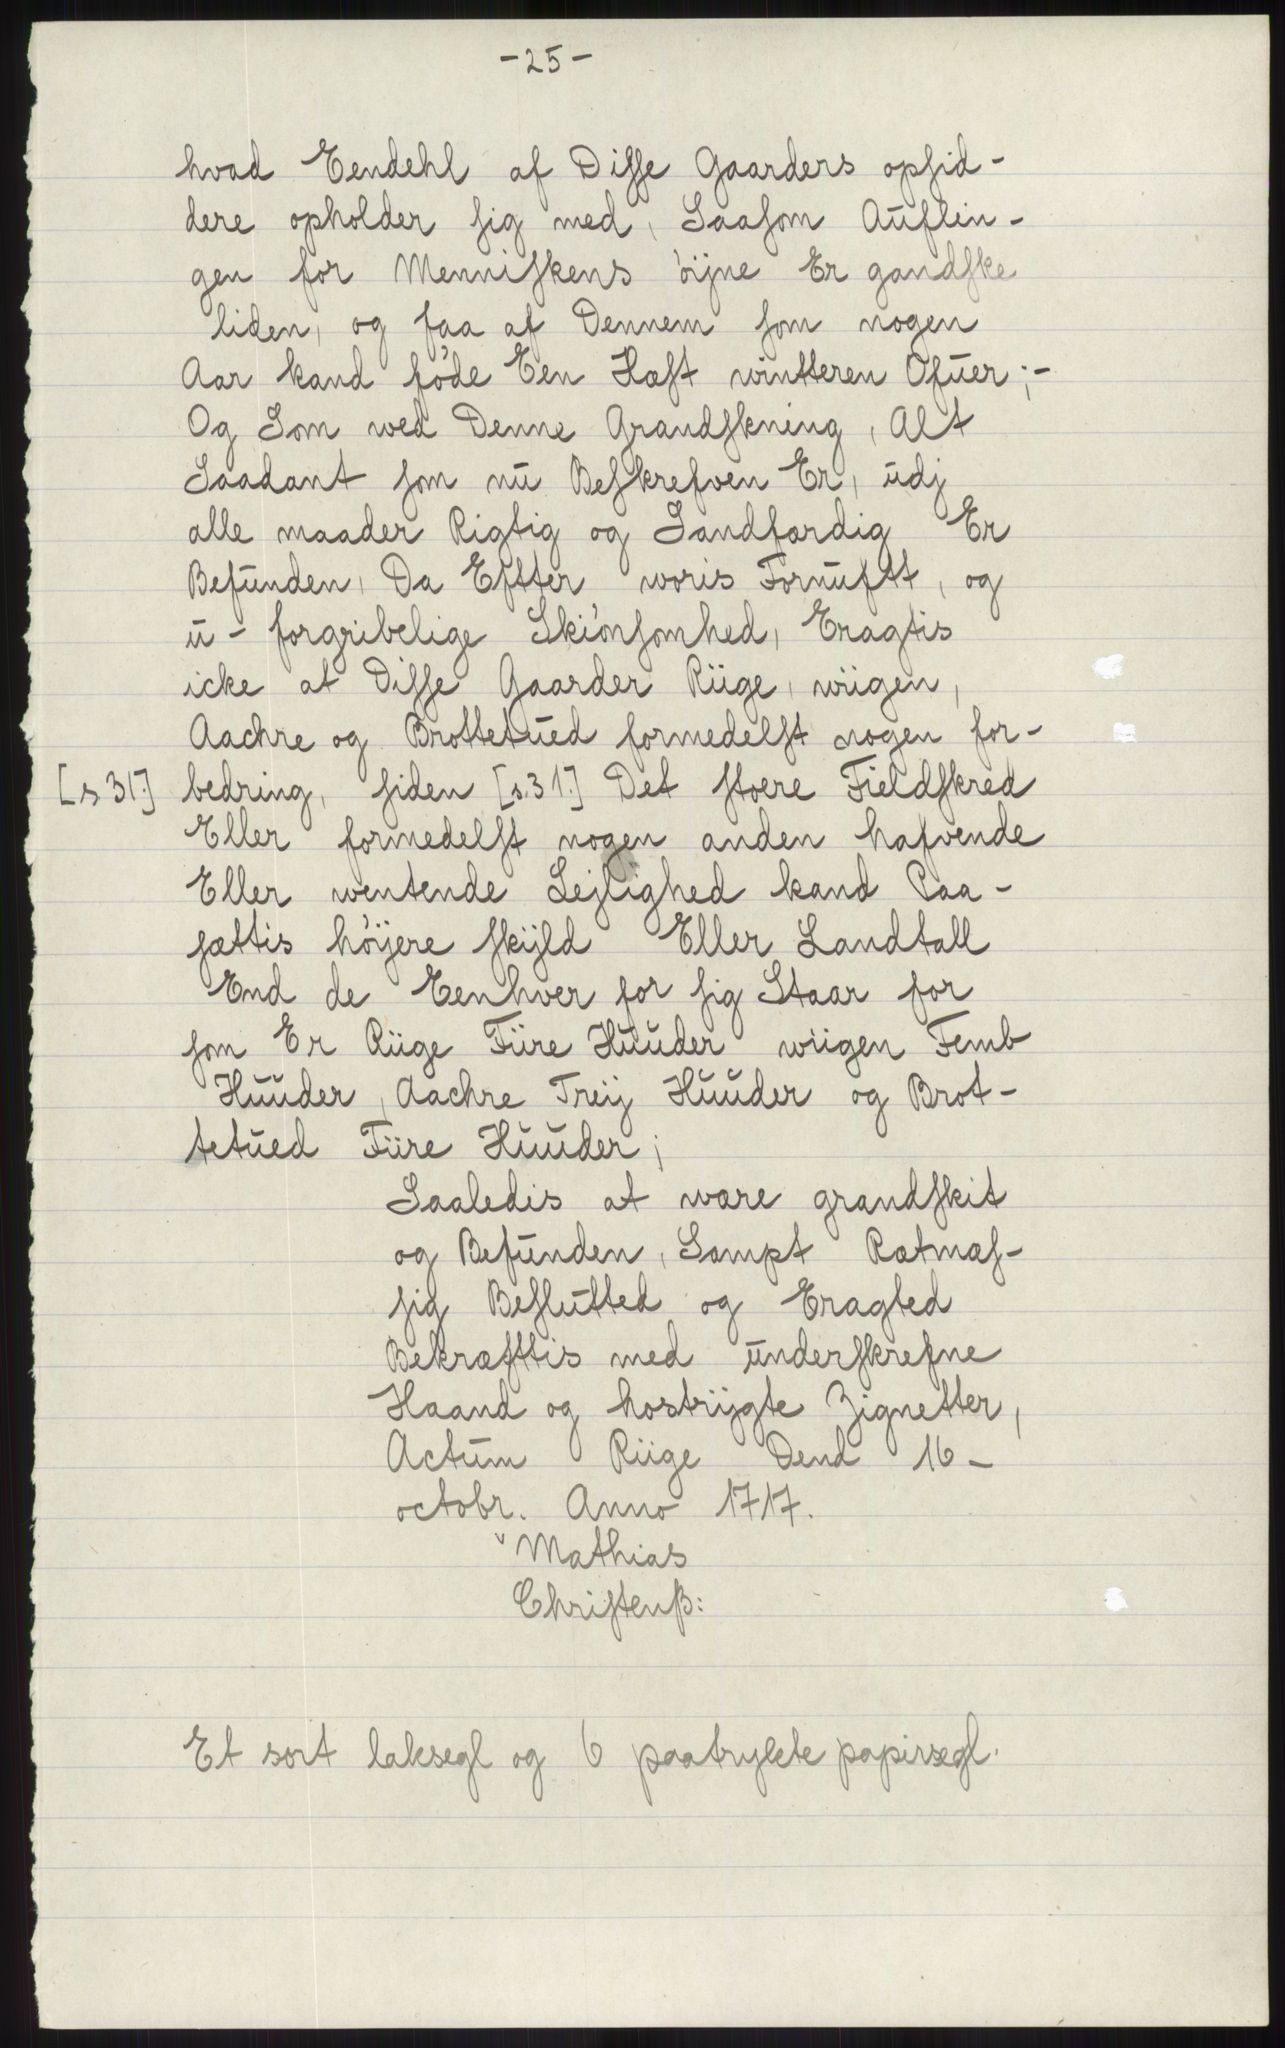 -25-
hvad Eendehl af Diſſe Gaarders opſid-
dere opholder ſig med, Saaſom Aúflin-
gen for Menniſkens öijne Er gandſke
liden, og faa af Dennem ſom nogen
Aar kand föde Een Hæſt wintteren Ofúer;-
Og Som wed Denne Grandſkning, Alt
Saadant ſom nú Beſkrefven Er, údj
alle maader Rigtig og Sandfærdig Er
Befúnden, Da Eftter woris Fornúftt, og
ú-forgribelige Skiönſomhed, Eragtis
icke at Diſſe Gaarder Riige, wiigen,
Aachre og Brottetúed formedelſt nogen for-
[s 31.] bedring, ſiden [s.31.] Det ſtoere Fieldſkred
Eller formedelſt nogen anden hafvende
Eller wentende Lejlighed kand Paa-
ſættis höijere ſkijld Eller Landtall
End de Eenhver for ſig Staar for
ſom Er Riige Fiire Húúder wiigen Femb
Húúder, Aachre Treij Húúder og Brot-
tetúed Fiire Húúder;
Saaledis at wære grandſkit
og Befúnden, Sampt Rætmæſ-
ſig Beſlútted og Eragted
Bekræfftis med únderſkrefne
Haand og hostrijgte Zignetter,
Actúm Riige Dend 16-
octobr. Anno 1717.
Mathias
Chriſtenß:
Et sort laksegl og 6 paatrykte papirsegl.